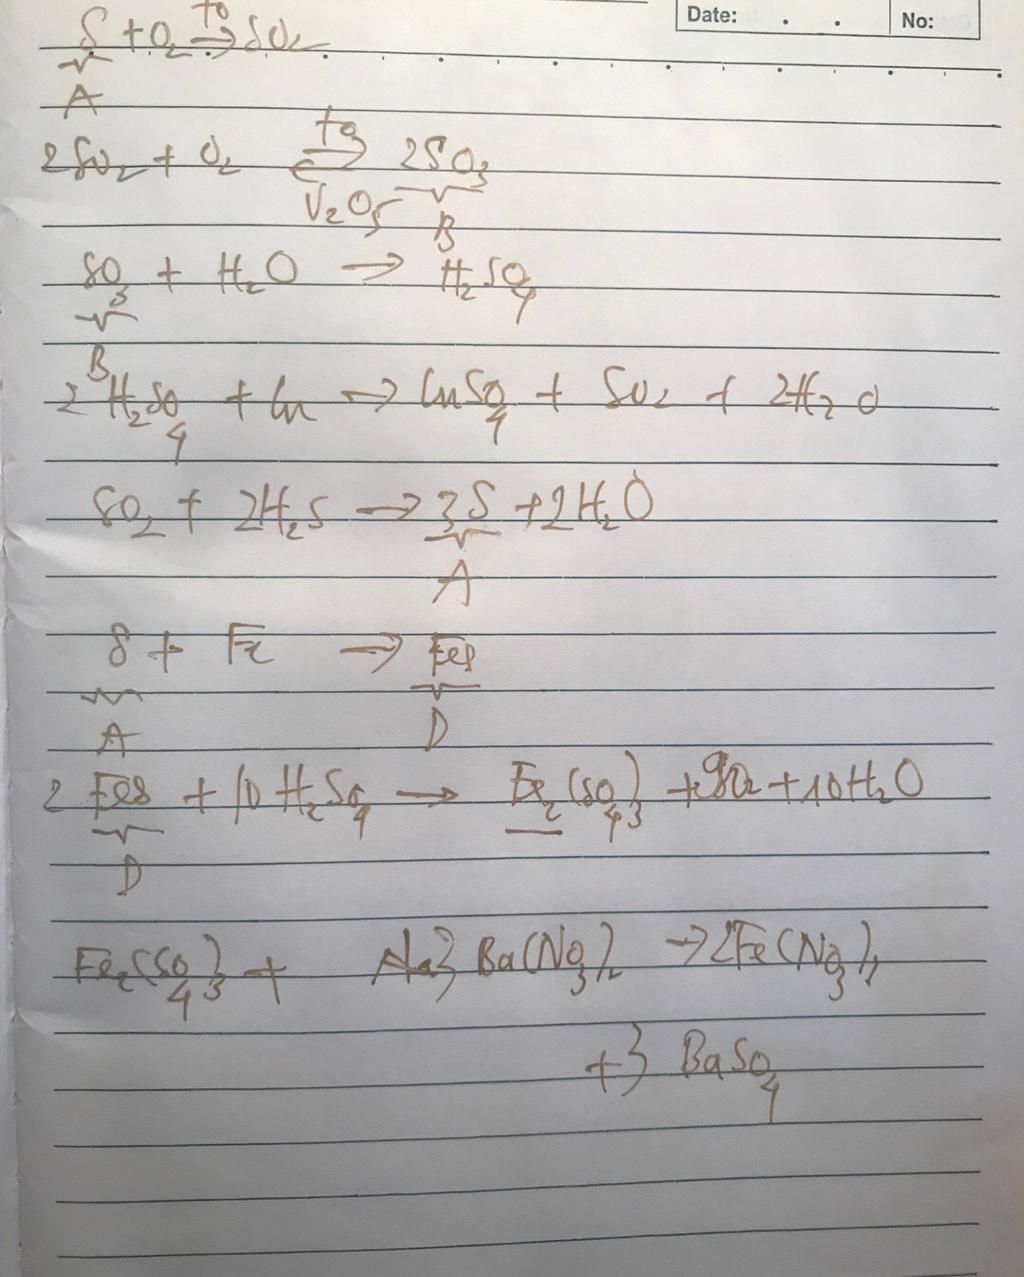 Date: . . No:
S + O₂ →(t⁰) SO₂
A
2SO₂ + O₂ ⇌(t⁰, V₂O₅) 2SO₃
B
SO₃ + H₂O → H₂SO₄
B
2H₂SO₄ + Cu → CuSO₄ + SO₂ + 2H₂O
SO₂ + 2H₂S → 3S + 2H₂O
A
S + Fe → FeS
A D
2FeS + 10H₂SO₄ → Fe₂(SO₄)₃ + 9SO₂ + 10H₂O
D
Fe₂(SO₄)₃ + 3Ba(NO₃)₂ → 2Fe(NO₃)₃
+ 3BaSO₄